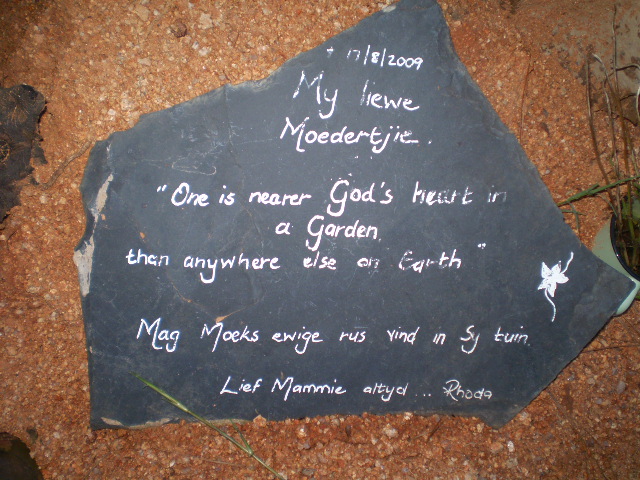 † 17/8/2009
My liewe
Moedertjie.
"One is nearer God's heart in
a Garden
than anywhere else on Earth"
Mag Moeks ewige rus vind in Sy tuin.
Lief Mammie altyd ... Rhoda